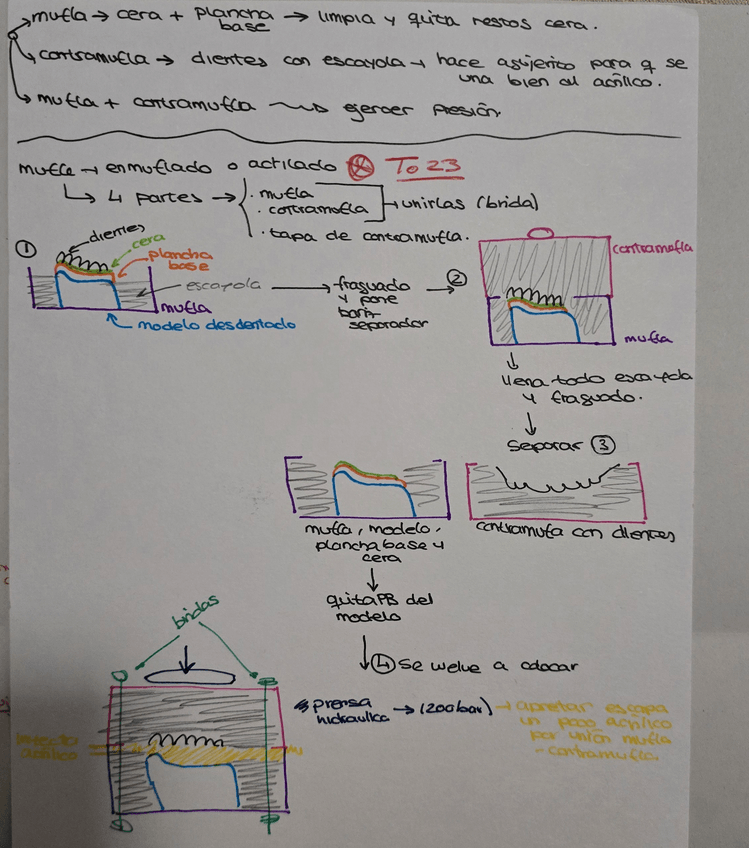 mufla → cera + plancha base → limpia y quita restos cera.
contramufla → dientes con escayola → hace agujerito para q se una bien al acrílico.
mufla + contramufla ⟿ ejercer presión.
mufla → enmuflado o acrilado To 23
↳ 4 partes →
· mufla
· contramufla
→ unirlas (brida)
· tapa de contramufla.
①
dientes
cera
plancha base
escayola
mufla
modelo desdentado
→ fraguado y pone barniz separador →
②
contramufla
mufla
↓
llena todo escayola y fraguado.
↓
separar ③
mufla, modelo, plancha base y cera
contramufla con dientes
↓
quita PB del modelo
↓ ④ se vuelve a colocar
bridas
inyecto acrílico
prensa hidraulica → (200 bar) → apretar escapa un poco acrílico por unión mufla - contramufla.